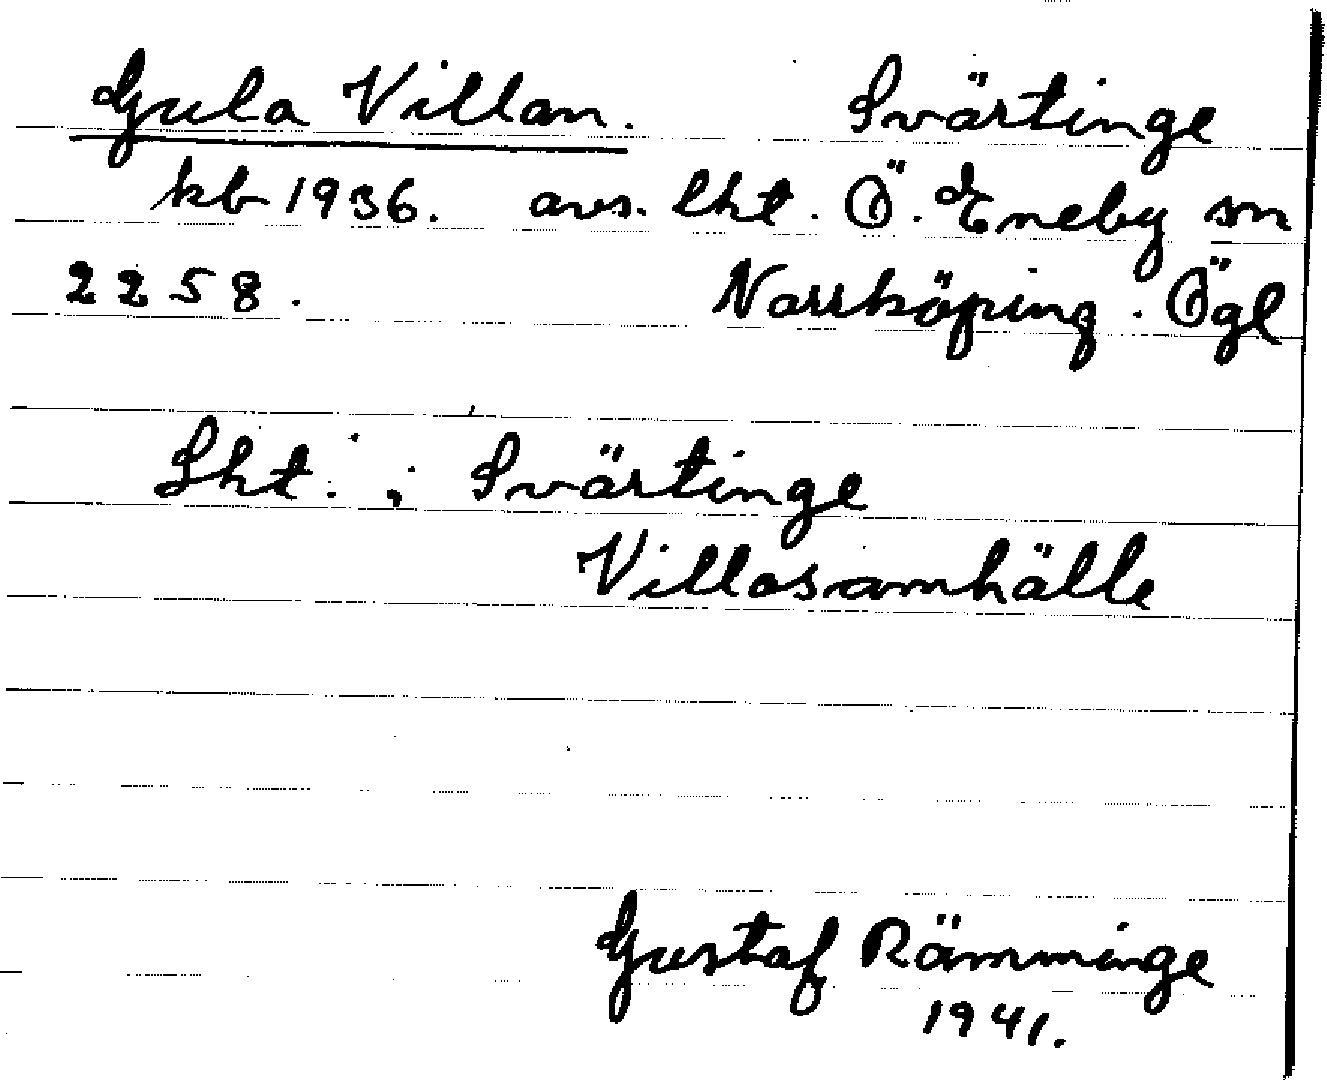 Gula Villan. Svärtinge
kb 1936. avs. lht. Ö. Eneby sn
2258. Norrköping. Ögl
Lht. ; Svärtinge
Villasamhälle
Gustaf Rämminge
1941.